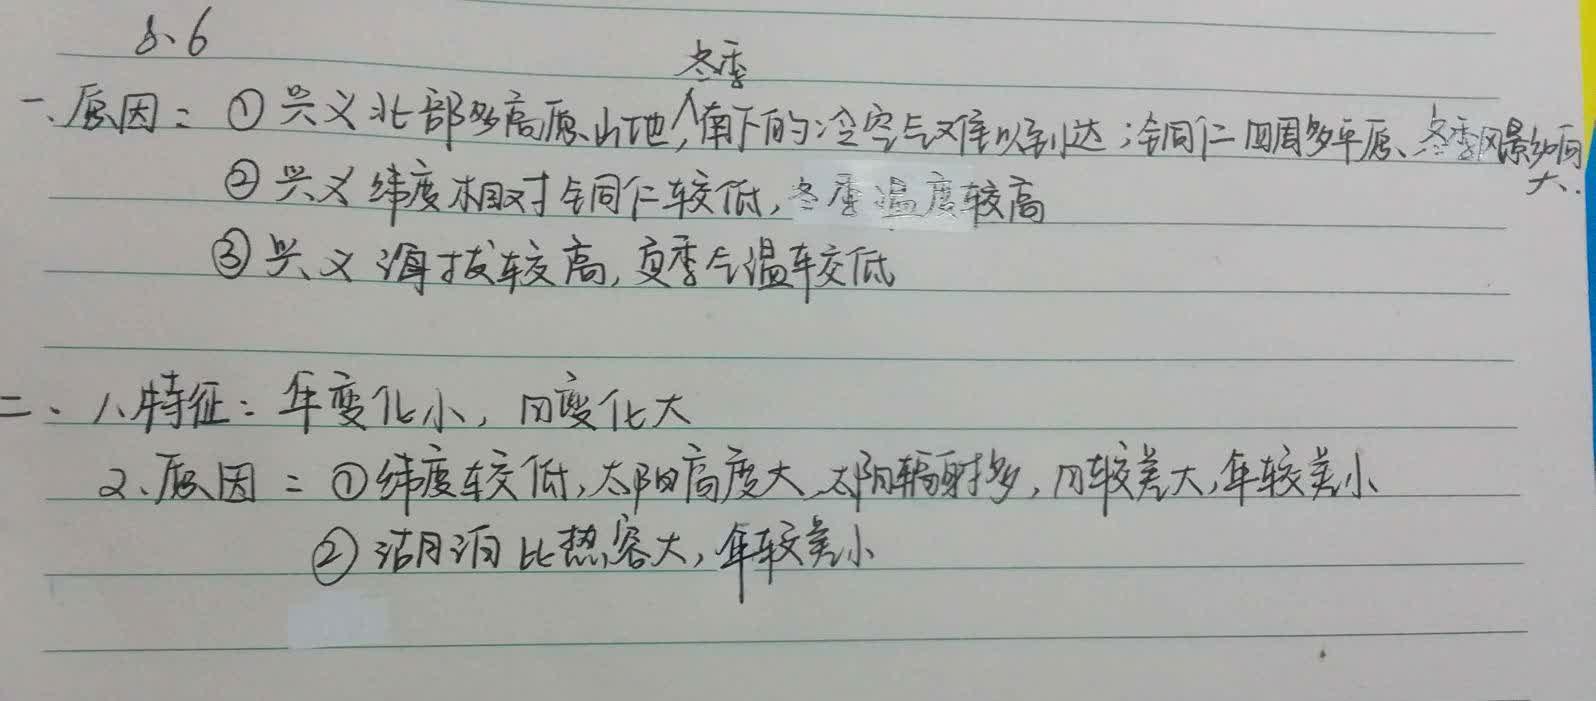 8、6
一、原因：①兴义北部多高原、山地，冬季南下的冷空气难以到达；铜仁四周多平原、冬季风影响大.
②兴义纬度相对铜仁较低，冬季温度较高
③兴义海拔较高，夏季气温较低
二、1、特征：年变化小，日变化大
2、原因：①纬度较低，太阳高度大，太阳辐射多，日较差大，年较差小
②湖泊比热容大，年较差小